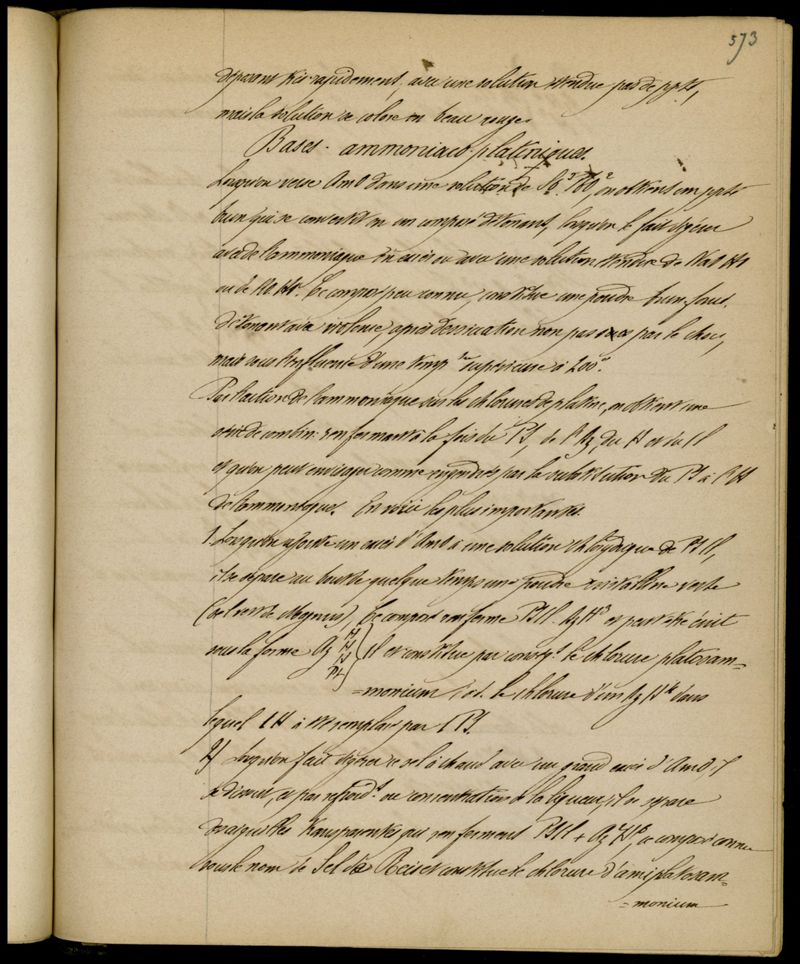 573
déposent très rapidement, avec une solution étendue pas de ppté,
mais la solution se colore en beau rouge.
Bases - ammoniaco platiniques.
Lorsqu'on verse AmO dans une solution de PtO², on obtient un ppté
brun qui se convertit en un composé détonant, lorsqu'on le fait digérer
avec de l'ammoniaque en excès ou avec une solution étendue de NaO HO
ou de KO HO. Ce composé peu connu, constitue une poudre brun foncé.
détonant avec violence, après dessication non pas par le choc,
mais sous l'influence d'une temp re supérieure à 200°.
Par l'action de l'ammoniaque sur les chlorures de platine, on obtient une
série de combin. renfermant à la fois du Pt, de l'Az, du H et du Cl
et qu'on peut envisager comme engendrés par la substitution du Pt à l'H
de l'ammoniaque. En voici les plus importantes.
1. Lorsqu'on ajoute un excès d'AmO à une solution chlorhydrique de PtCl,
il se sépare au bout de quelque temps une poudre cristalline verte
(sel vert de Magnus). Ce composé renferme PtCl. AzH³ et peut être écrit
sous la forme Az H H H Pt } Cl et constitue par conséqt. le chlorure platosam=
=monium c.à.d. le chlorure d'un AzH⁴ dans
lequel 1 H a été remplacé par 1 Pt.
2) Lorsqu'on fait digérer ce sel à chaud avec un grand excès d'AmO il
se dissout, et par refroidt. ou concentration de la liqueur, il se sépare
des aiguilles transparentes qui renferment PtCl + Az²H⁶, ce composé connu
sous le nom de Sel de Reiset constitue le chlorure d'amiplatosam=
=monium